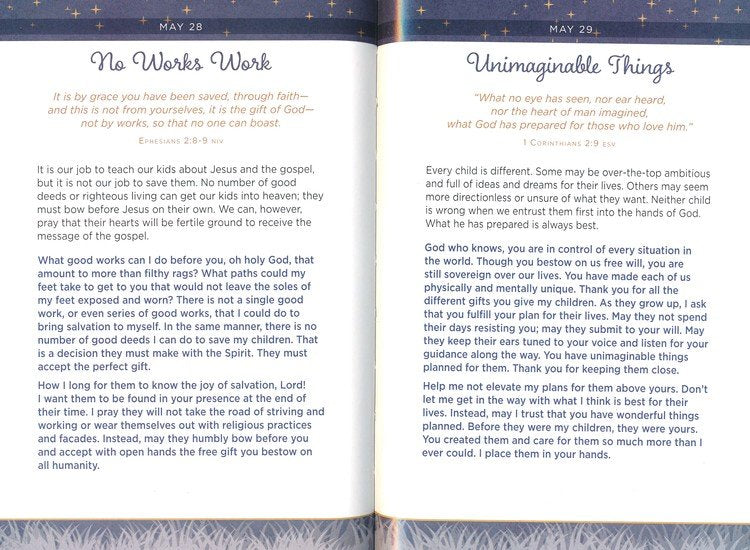 MAY 28
No Works Work
It is by grace you have been saved, through faith—
and this is not from yourselves, it is the gift of God—
not by works, so that no one can boast.
Ephesians 2:8-9 NIV
It is our job to teach our kids about Jesus and the gospel,
but it is not our job to save them. No number of good
deeds or righteous living can get our kids into heaven; they
must bow before Jesus on their own. We can, however,
pray that their hearts will be fertile ground to receive the
message of the gospel.
What good works can I do before you, oh holy God, that
amount to more than filthy rags? What paths could my
feet take to get to you that would not leave the soles of
my feet exposed and worn? There is not a single good
work, or even series of good works, that I could do to
bring salvation to myself. In the same manner, there is no
number of good deeds I can do to save my children. That
is a decision they must make with the Spirit. They must
accept the perfect gift.
How I long for them to know the joy of salvation, Lord!
I want them to be found in your presence at the end of
their time. I pray they will not take the road of striving and
working or wear themselves out with religious practices
and facades. Instead, may they humbly bow before you
and accept with open hands the free gift you bestow on
all humanity.
MAY 29
Unimaginable Things
“What no eye has seen, nor ear heard,
nor the heart of man imagined,
what God has prepared for those who love him.”
1 Corinthians 2:9 ESV
Every child is different. Some may be over-the-top ambitious
and full of ideas and dreams for their lives. Others may seem
more directionless or unsure of what they want. Neither child
is wrong when we entrust them first into the hands of God.
What he has prepared is always best.
God who knows, you are in control of every situation in
the world. Though you bestow on us free will, you are
still sovereign over our lives. You have made each of us
physically and mentally unique. Thank you for all the
different gifts you give my children. As they grow up, I ask
that you fulfill your plan for their lives. May they not spend
their days resisting you; may they submit to your will. May
they keep their ears tuned to your voice and listen for your
guidance along the way. You have unimaginable things
planned for them. Thank you for keeping them close.
Help me not elevate my plans for them above yours. Don’t
let me get in the way with what I think is best for their
lives. Instead, may I trust that you have wonderful things
planned. Before they were my children, they were yours.
You created them and care for them so much more than I
ever could. I place them in your hands.